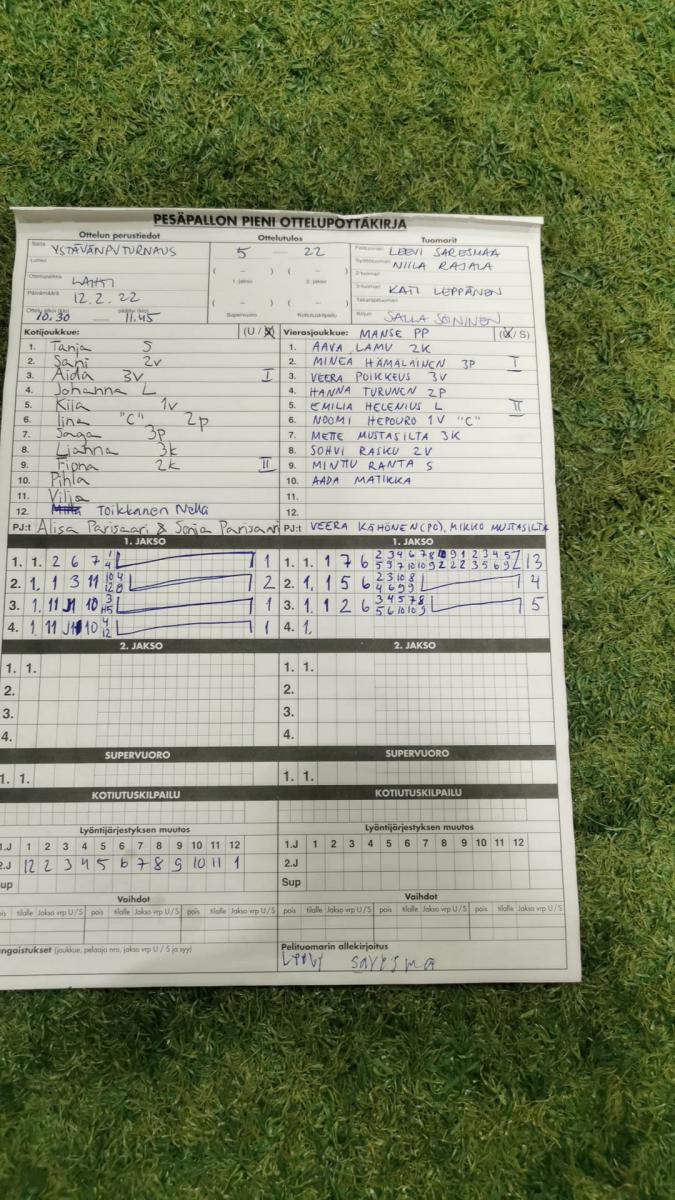 PESÄPALLON PIENI OTTELUPÖYTÄKIRJA
Ottelun perustiedot Ottelutulos Tuomarit
Sarja YSTÄVÄNPVTURNAUS 5 — 22 Pelituomari LEEVI SARESMAA
NIILA RAJALA
Ottelupaikka LAHTI ( – ) ( – ) 2-tuomari
1. jakso 2. jakso 3-tuomari KATI LEPPÄNEN
Päivämäärä 12.2.22 Takarajatuomari
10.30 11.45 ( – ) ( – ) Kirjuri SALLA SOININEN
Supervuoro Kotiutuskilpailu
Kotijoukkue: (U / S)
1. Tanja S
2. Sani 2v
3. Aida 3v I
4. Johanna L
5. Kiia 1v
6. Iina "C" 2p
7. Saga 3p
8. Lianna 3k
9. Fiona 2k II
10. Pihla
11. Vilja
12. Toikkanen Nella
PJ:t Alisa Parisaari & Sonja Parisaari
Vierasjoukkue: MANSE PP (U / S)
1. AAVA LAMU 2K
2. MINEA HÄMÄLÄINEN 3P I
3. VEERA POIKKEUS 3V
4. HANNA TURUNEN 2P
5. EMILIA HELENIUS L II
6. NOOMI HEPOURO 1V "C"
7. METTE MUSTASILTA 3K
8. SOHVI RASKU 2V
9. MINTTU RANTA S
10. AADA MATIKKA
11.
12.
PJ:t VEERA KÄHÖNEN (PO), MIKKO MUSTASILTA
1. JAKSO 1. JAKSO
1. 1. 2 6 7 1 4 1
2. 1. 1 3 11 10 4 12 8 2
3. 1. 11 10 1
4. 1. 11 10 4 12 1
1. 1. 1 7 6 13
2. 1. 1 5 6 2 3 10 8 4 6 9 9 4
3. 1. 1 2 6 3 4 5 7 8 5 6 10 10 9 5
4. 1.
2. JAKSO 2. JAKSO
1. 1. 1. 1.
2. 2.
3. 3.
4. 4.
SUPERVUORO SUPERVUORO
1. 1. 1. 1.
KOTIUTUSKILPAILU KOTIUTUSKILPAILU
Lyöntijärjestyksen muutos Lyöntijärjestyksen muutos
1.J 1 2 3 4 5 6 7 8 9 10 11 12 1.J 1 2 3 4 5 6 7 8 9 10 11 12
2.J 12 2 3 4 5 6 7 8 9 10 11 1 2.J
Sup Sup
Vaihdot Vaihdot
pois tilalle Jakso vrp U / S pois tilalle Jakso vrp U / S pois tilalle Jakso vrp U / S pois tilalle Jakso vrp U / S pois tilalle Jakso vrp U / S pois tilalle Jakso vrp U / S
ngaistukset (joukkue, pelaaja nro, jakso vrp U / S ja syy) Pelituomarin allekirjoitus